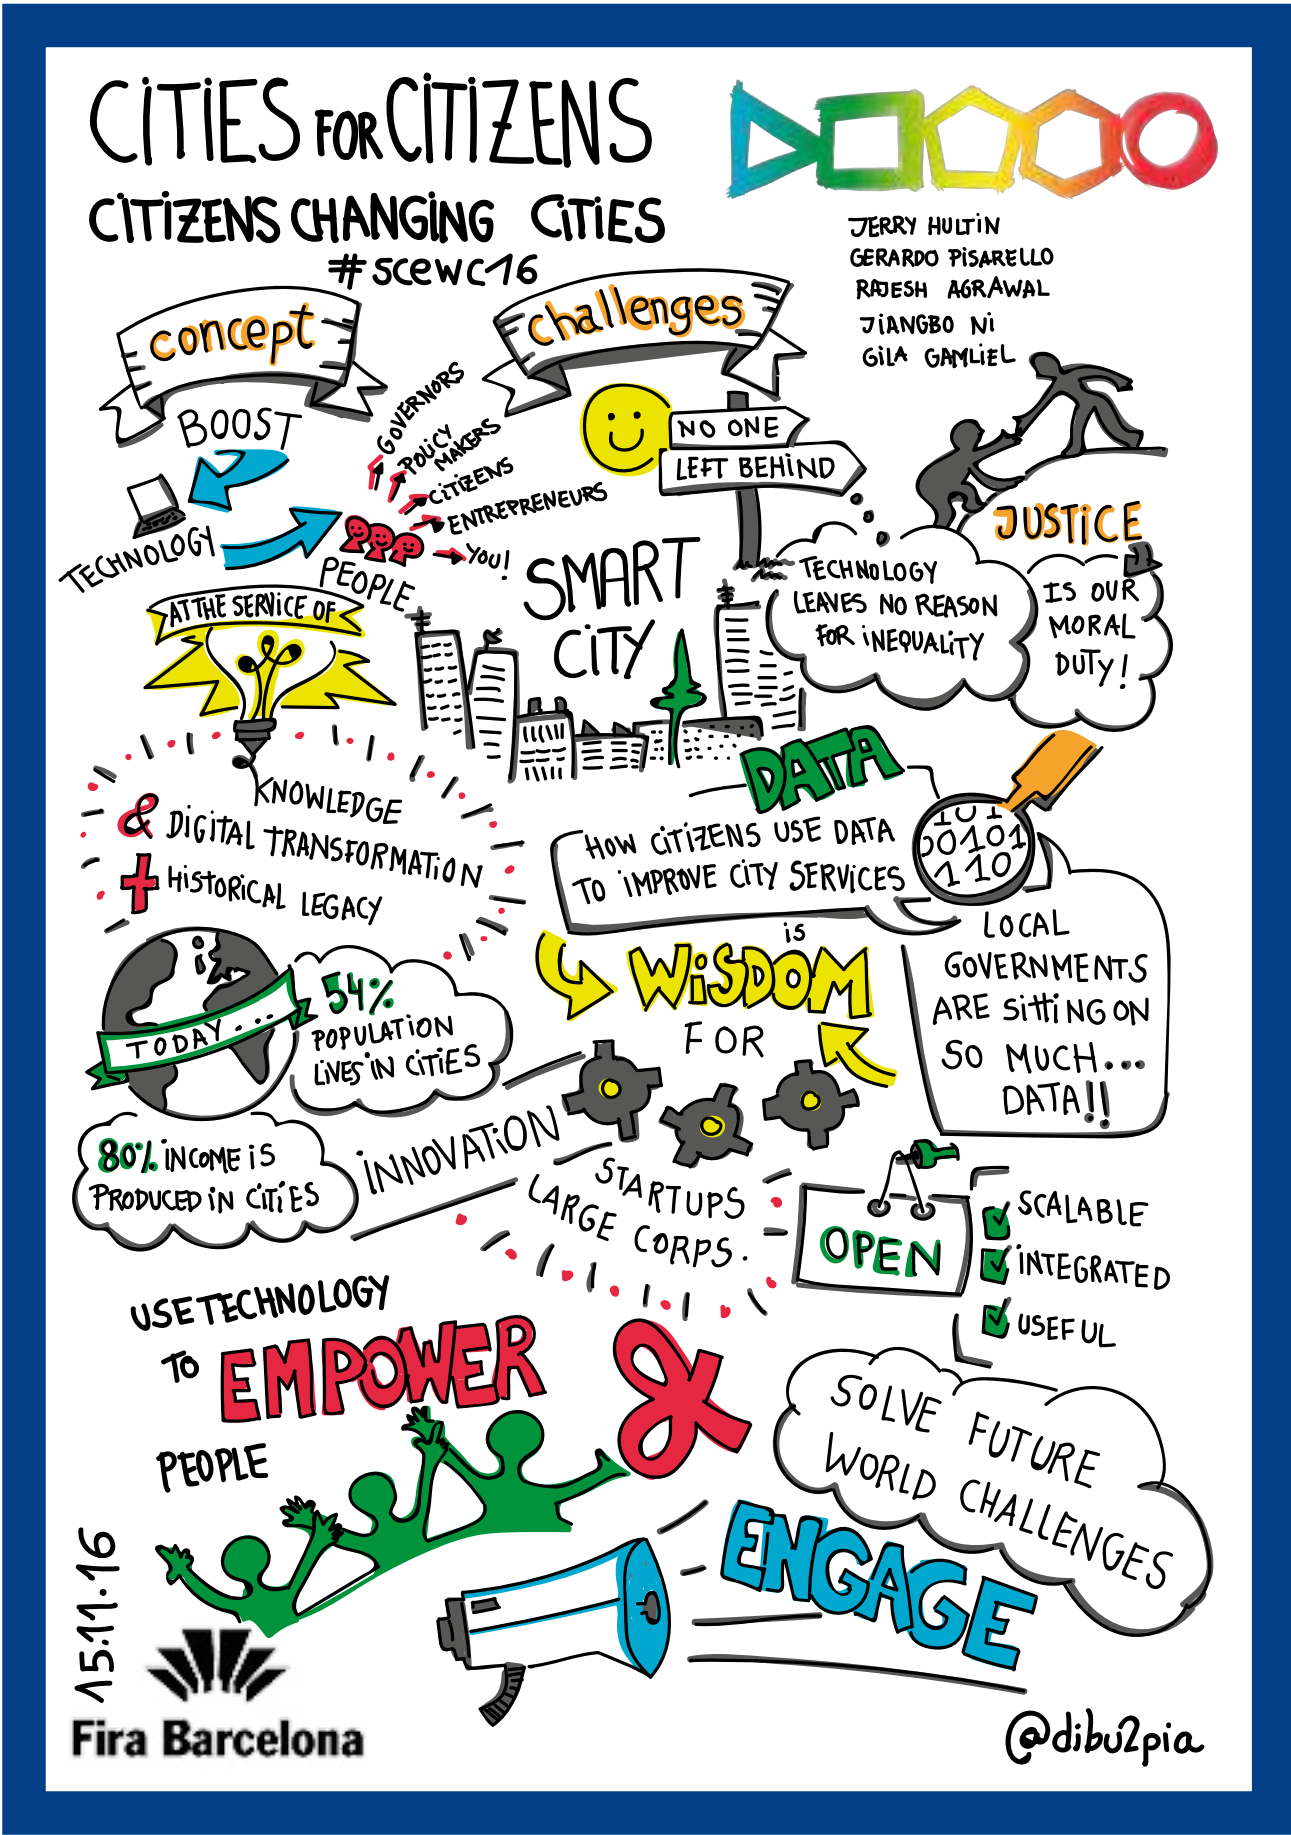 CiTiES FOR CiTiZENS
CiTiZENS CHANGiNG CiTiES
#scewc16
JERRY HULTiN
GERARDO PiSARELLO
RAJESH AGRAWAL
JiANGBO Ni
GiLA GAMLiEL
concept
challenges
BOOST
TECHNOLOGY
PEOPLE
GOVERNORS
POLiCY
MAKERS
CiTiZENS
ENTREPRENEURS
YOU!
NO ONE
LEFT BEHiND
JUSTiCE
IS OUR
MORAL
DUTY!
TECHNOLOGY
LEAVES NO REASON
FOR iNEQUALiTY
AT THE SERViCE OF
SMART
CiTY
KNOWLEDGE
& DiGiTAL TRANSFORMATiON
+ HiSTORiCAL LEGACY
DATA
HOW CiTiZENS USE DATA
TO iMPROVE CiTY SERViCES
101
00101
110
is
WiSDOM
FOR
LOCAL
GOVERNMENTS
ARE SittiNG ON
SO MUCH...
DATA!!
TODAY...
54%
POPULATiON
LiVES iN CiTiES
80% iNCOME iS
PRODUCED iN CiTiES
iNNOVATiON
STARTUPS
LARGE CORPS.
OPEN
SCALABLE
iNTEGRATED
USEFUL
USE TECHNOLOGY
TO EMPOWER
PEOPLE
SOLVE FUTURE
WORLD CHALLENGES
ENGAGE
15.11.16
Fira Barcelona
@dibu2pia